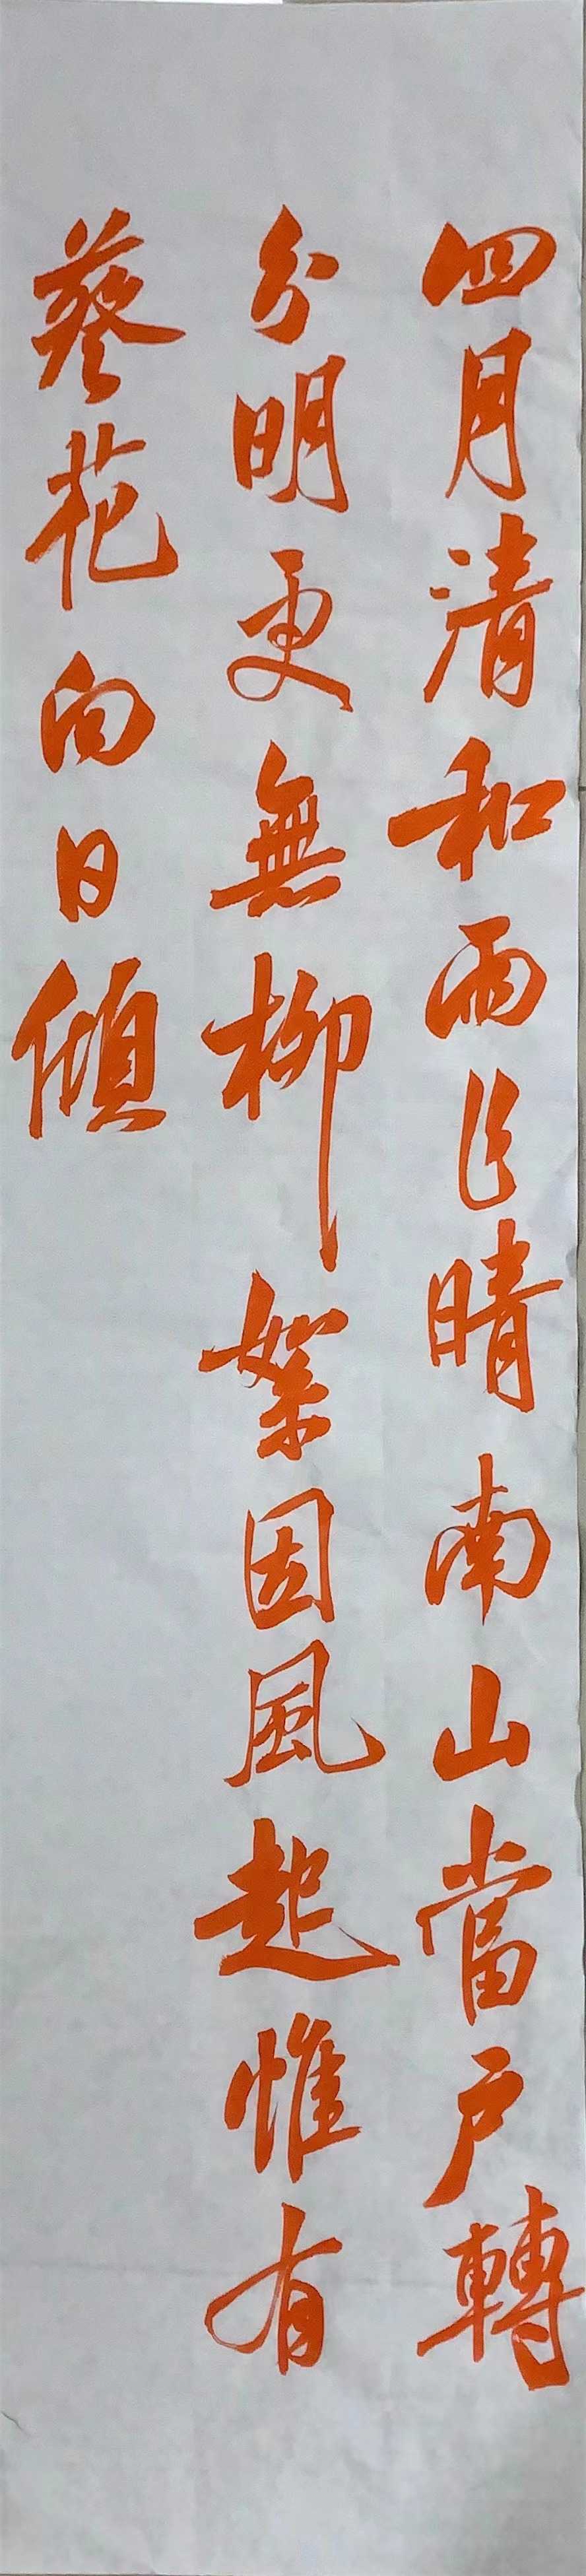 四月清和雨乍晴南山當户轉
分明更無柳絮因風起惟有
葵花向日傾